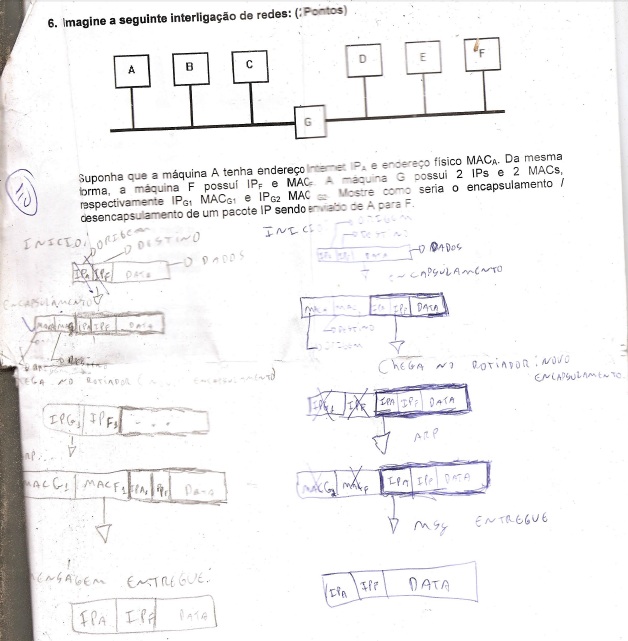 6. Imagine a seguinte interligação de redes: ( Pontos)
A B C D E F
G
Suponha que a máquina A tenha endereço Internet IPA e endereço físico MACA. Da mesma
forma, a máquina F possui IPF e MACF. A máquina G possui 2 IPs e 2 MACs,
respectivamente IPG1 MACG1 e IPG2 MAC G2. Mostre como seria o encapsulamento /
desencapsulamento de um pacote IP sendo enviado de A para F.
INICIO: ORIGEM
DESTINO
DADOS
IPA IPF DATA
ENCAPSULAMENTO
IPA IPF DATA
NO ROTIADOR
IPG1 IPF1 ...
MACG1 MACF1 IPA IPF Data
MENSAGEM ENTREGUE:
IPA IPF DATA
INICIO
ORIGEM
DESTINO
DADOS
DATA
ENCAPSULAMENTO
MACA IPA IPF DATA
DESTINO
ORIGEM
CHEGA NO ROTIADOR: NOVO
ENCAPSULAMENTO
IPG1 IPF IPA IPF DATA
ARP
MACG2 MACF IPA IPF DATA
MSG ENTREGUE
IPA IPF DATA